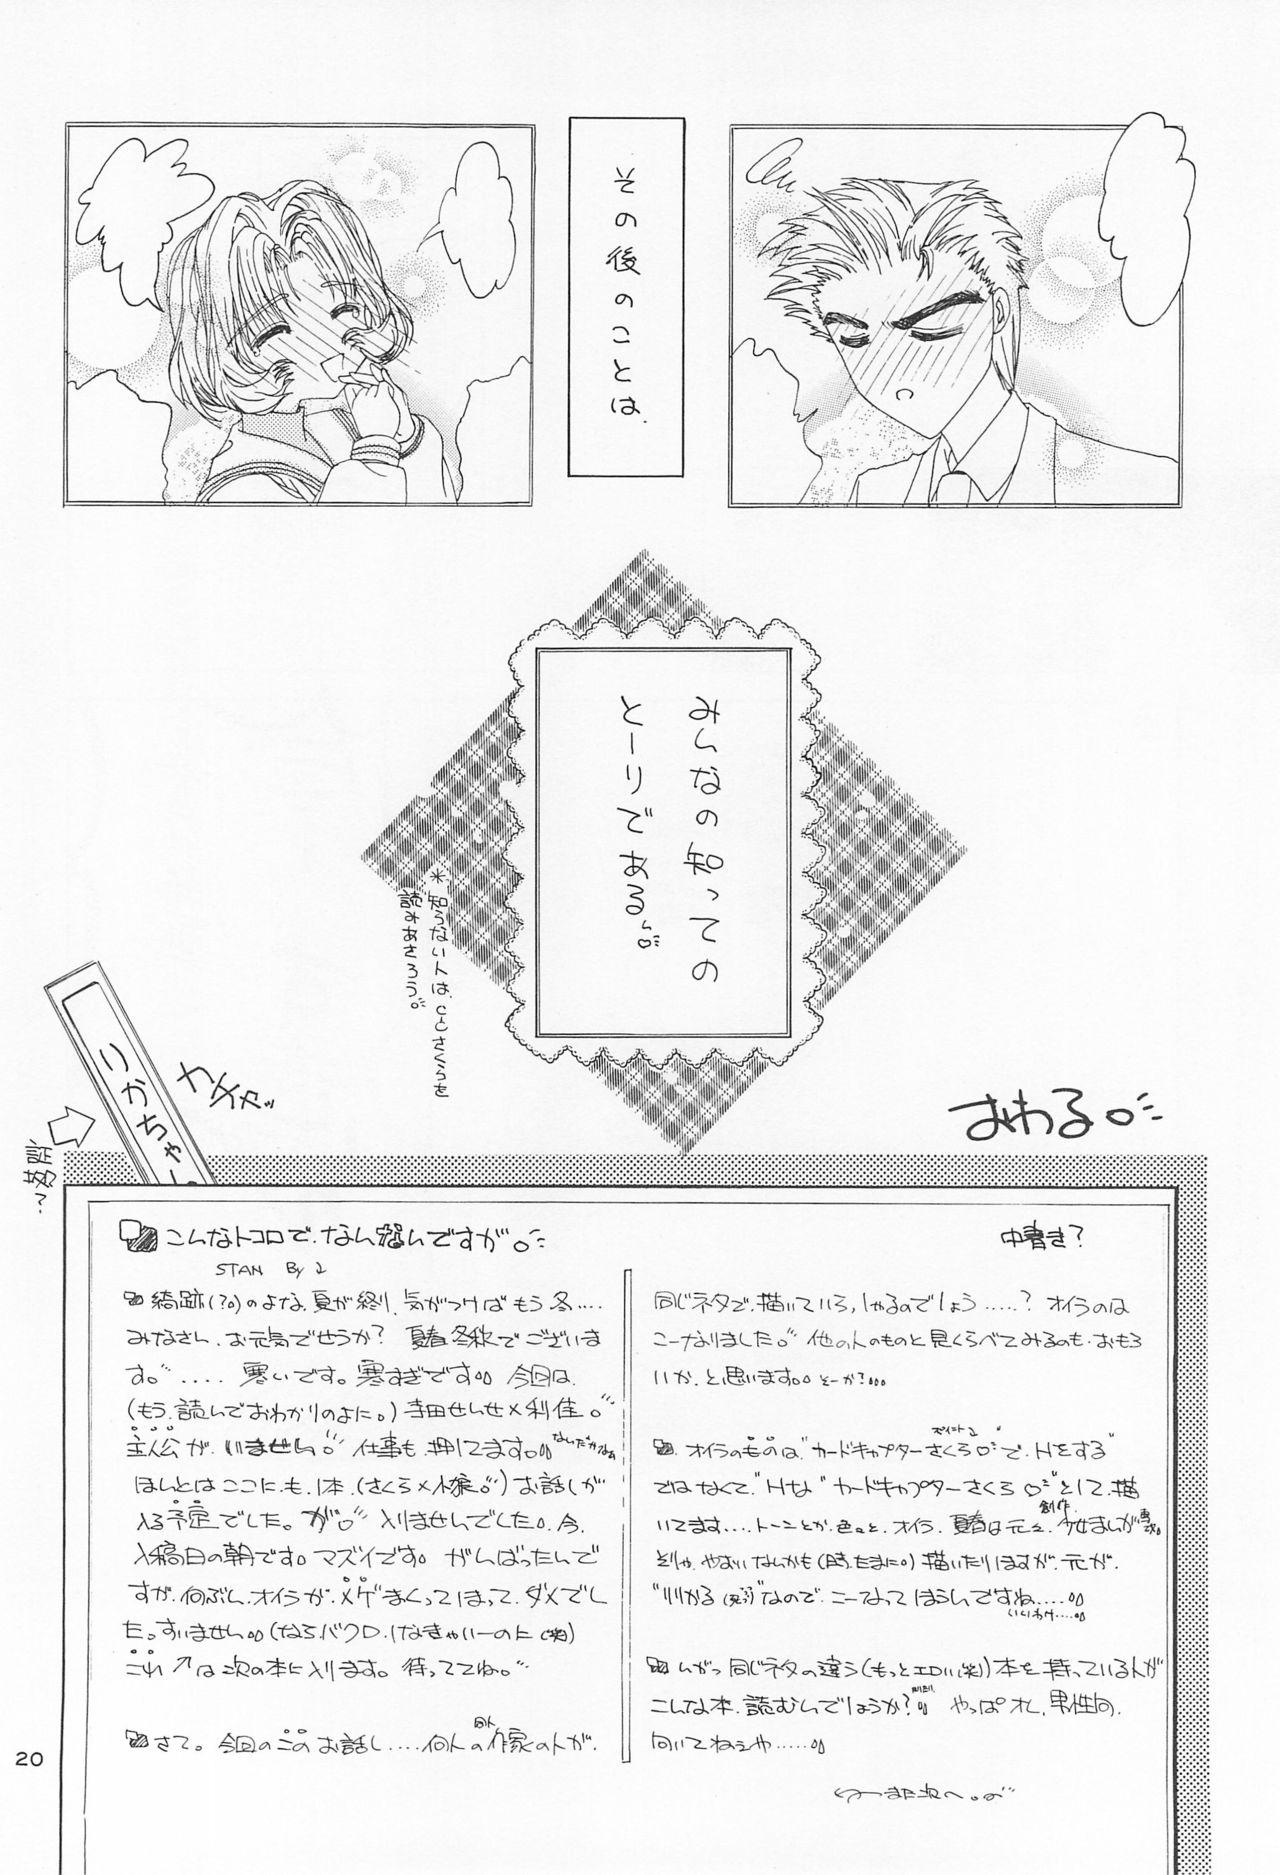 その後のことは、
みんなの知っての
とーりである。
*知らない人は、CCさくらを
読みあさろう。
おわる
りかちゃん
カチャッ
中書き?
こんなトコロで、なんなんですが。
STAN By 2
綺跡(?。)のよな、夏が終り、気がつけばもう冬....
みなさん、お元気でせうか? 夏春冬秋でございま
す。.... 寒いです。寒すぎです 今回は、
(もう、読んでおわかりのよに。)寺田せんせ×利佳。
主人公が、いません。仕事も、押してます。
ほんとはここに、も、1本、(さくら×小狼)お話しが
入る予定でした。が。入りませんでした。今、
入稿日の朝です。マズイです。がんばったんで
すが、何ぶん、オイラが、メゲまくってしまって、ダメでし
た。すいません
これ↑は次の本に入ります。待っててね。
さて。今回のこのお話し....何人の作家の人が、
同じネタで、描いていらっしゃるのでしょう.....? オイラのは
こーなりました。他の人のものと見くらべてみるのも、おもろ
いか、と思います。そーか?
オイラのものは"カードキャプターさくらで、Hをする"
ではなくて、"Hな"カードキャプターさくら"として、描
いてます....トーンとか、色々と、オイラ、夏春は元々、創作少女まんが
そりゃ、やおいなんかも(時、たまに。)描いたりしますが、元が、
なので、こーなってしまうんですね....
いいわけ....
同じネタの違う(もっとエロい(笑))本を持っている人が
こんな本、読むんでしょうか? やっぱオレ、男性向、
向いてねぇや.....
また次へ。
20